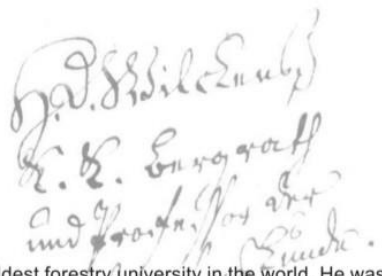 H. D. Wilckens
K. K. Bergrath
und Professor der
dest forestry university in the world. He was